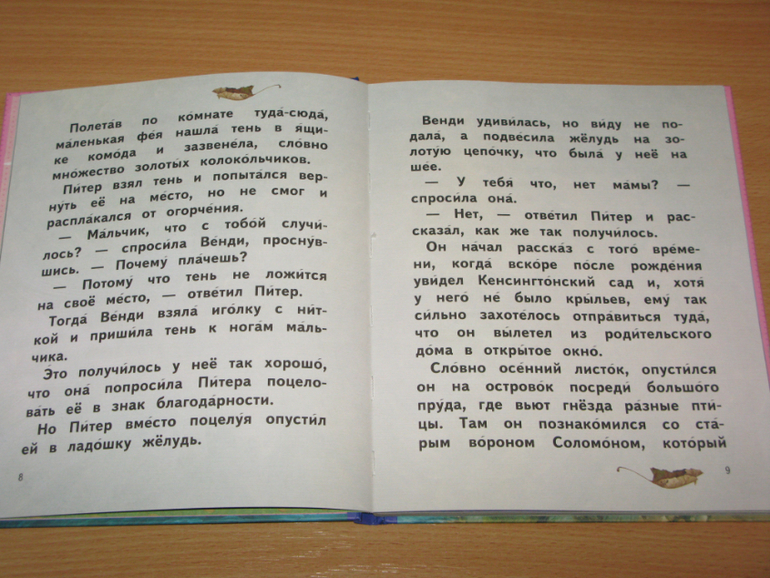 Полета́в по ко́мнате туда́-сюда́,
ма́ленькая фе́я нашла́ тень в я́щи-
ке комо́да и зазвене́ла, сло́вно
мно́жество золоты́х колоко́льчиков.
Пи́тер взял тень и попыта́лся вер-
ну́ть её на ме́сто, но не смог и
распла́кался от огорче́ния.
— Ма́льчик, что с тобо́й случи́-
лось? — спроси́ла Ве́нди, просну́в-
шись. — Почему́ пла́чешь?
— Потому́ что тень не ложи́тся
на своё ме́сто, — отве́тил Пи́тер.
Тогда́ Ве́нди взяла́ иго́лку с ни́т-
кой и приши́ла тень к нога́м ма́ль-
чика.
Э́то получи́лось у неё так хорошо́,
что она́ попроси́ла Пи́тера поцело-
ва́ть её в знак благода́рности.
Но Пи́тер вме́сто поцелу́я опусти́л
ей в ладо́шку жёлудь.
8
Венди удиви́лась, но ви́ду не по-
дала́, а подве́сила жёлудь на зо-
лоту́ю цепо́чку, что была́ у неё на
ше́е.
— У тебя́ что, нет ма́мы? —
спроси́ла она́.
— Нет, — отве́тил Пи́тер и рас-
сказа́л, как же так получи́лось.
Он на́чал расска́з с того́ вре́ме-
ни, когда́ вско́ре по́сле рожде́ния
уви́дел Кенсингто́нский сад и, хотя́
у него́ не́ было кры́льев, ему́ так
си́льно захоте́лось отпра́виться туда́,
что он вы́летел из роди́тельского
до́ма в откры́тое окно́.
Сло́вно осе́нний листо́к, опусти́лся
он на острово́к посреди́ большо́го
пруда́, где вьют гнёзда ра́зные пти́-
цы. Там он познако́мился со ста́-
рым во́роном Соломо́ном, кото́рый
9